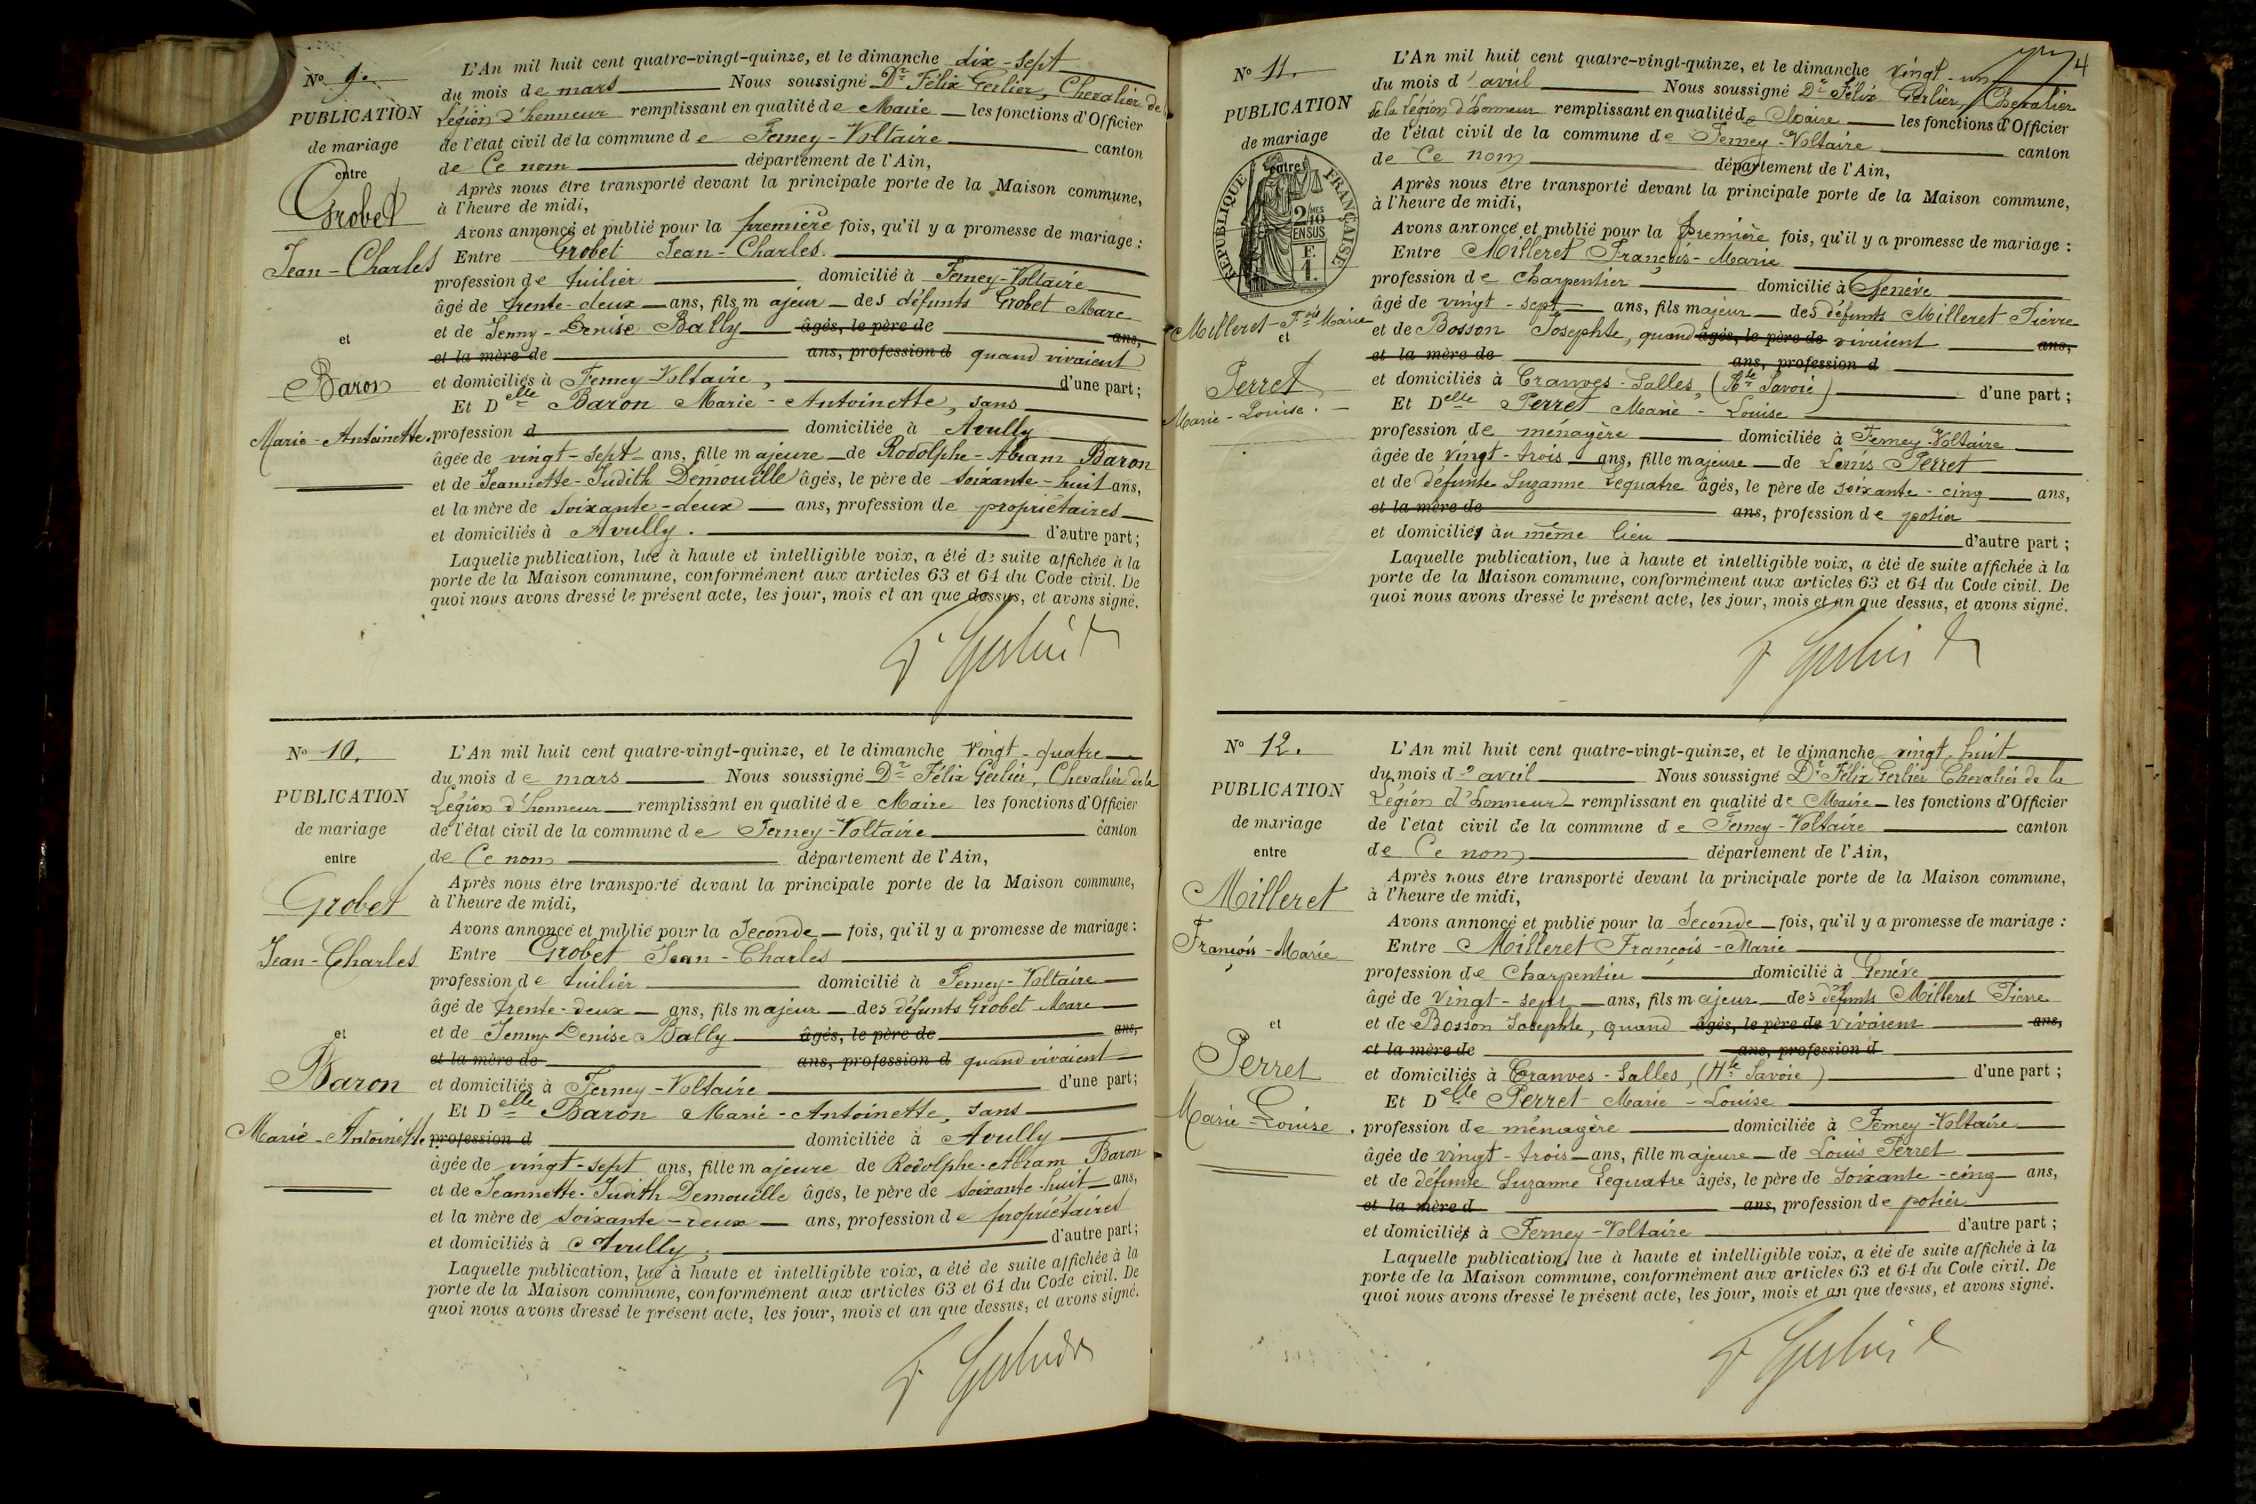 No 9.
PUBLICATION
de mariage
entre
Grobet
Jean-Charles
et
Baron
Marie-Antoinette.
L'An mil huit cent quatre-vingt-quinze, et le dimanche dix-sept
du mois de mars Nous soussigné Dr Félix Gerlier, Chevalier de la
Légion d'honneur remplissant en qualité de Maire les fonctions d'Officier
de l'état civil de la commune de Ferney-Voltaire canton
de Ce nom département de l'Ain,
Après nous être transporté devant la principale porte de la Maison commune,
à l'heure de midi,
Avons annoncé et publié pour la première fois, qu'il y a promesse de mariage :
Entre Grobet Jean-Charles.
profession de tuilier domicilié à Ferney-Voltaire
âgé de trente-deux ans, fils majeur des défunts Grobet Marc
et de Jenny-Denise Bally âgés, le père de ans,
et la mère de ans, profession d quand vivaient
et domiciliés à Ferney-Voltaire, d'une part ;
Et Delle Baron Marie-Antoinette, sans
profession d domiciliée à Avully
âgée de vingt-sept ans, fille majeure de Rodolphe-Abram Baron
et de Jeannette-Judith Demouille âgés, le père de soixante-huit ans,
et la mère de soixante-deux ans, profession de propriétaires
et domiciliés à Avully. d'autre part ;
Laquelle publication, lue à haute et intelligible voix, a été de suite affichée à la
porte de la Maison commune, conformément aux articles 63 et 64 du Code civil. De
quoi nous avons dressé le présent acte, les jour, mois et an que dessus, et avons signé.
F Gerlier
No 10.
PUBLICATION
de mariage
entre
Grobet
Jean-Charles
et
Baron
Marie-Antoinette
L'An mil huit cent quatre-vingt-quinze, et le dimanche vingt-quatre
du mois de mars Nous soussigné Dr Félix Gerlier, Chevalier de la
Légion d'honneur remplissant en qualité de Maire les fonctions d'Officier
de l'état civil de la commune de Ferney-Voltaire canton
de Ce nom département de l'Ain,
Après nous être transporté devant la principale porte de la Maison commune,
à l'heure de midi,
Avons annoncé et publié pour la Seconde fois, qu'il y a promesse de mariage :
Entre Grobet Jean-Charles
profession de tuilier domicilié à Ferney-Voltaire
âgé de trente-deux ans, fils majeur des défunts Grobet Marc
et de Jenny Denise Bally âgés, le père de ans,
et la mère de ans, profession d quand vivaient
et domiciliés à Ferney-Voltaire d'une part;
Et Delle Baron Marie-Antoinette, sans
profession d domiciliée à Avully
âgée de vingt-sept ans, fille majeure de Rodolphe-Abram Baron
et de Jeannette-Judith Demouille âgés, le père de soixante-huit ans,
et la mère de soixante-deux ans, profession de propriétaires
et domiciliés à Avully, d'autre part;
Laquelle publication, lue à haute et intelligible voix, a été de suite affichée à la
porte de la Maison commune, conformément aux articles 63 et 64 du Code civil. De
quoi nous avons dressé le présent acte, les jour, mois et an que dessus, et avons signé.
F Gerlier
4
No 11.
PUBLICATION
de mariage
entre
RÉPUBLIQUE FRANÇAISE
2/10 MES
EN SUS
F.
1.
Milleret-Fois Marie
et
Perret
Marie-Louise.
L'An mil huit cent quatre-vingt-quinze, et le dimanche vingt-un
du mois d'avril Nous soussigné Dr Félix Gerlier, Chevalier
de la Légion d'honneur remplissant en qualité de Maire les fonctions d'Officier
de l'état civil de la commune de Ferney-Voltaire canton
de Ce nom département de l'Ain,
Après nous être transporté devant la principale porte de la Maison commune,
à l'heure de midi,
Avons annoncé et publié pour la première fois, qu'il y a promesse de mariage :
Entre Milleret François-Marie
profession de charpentier domicilié à Genève
âgé de vingt-sept ans, fils majeur des défunts Milleret Pierre
et de Bosson Josephte, quand âgés, le père de vivaient ans,
et la mère de ans, profession d
et domiciliés à Cranves-Salles, (Hte Savoie) d'une part ;
Et Delle Perret Marie-Louise
profession de ménagère domiciliée à Ferney-Voltaire
âgée de vingt-trois ans, fille majeure de Louis Perret
et de défunte Suzanne Lequatre âgés, le père de soixante-cinq ans,
et la mère de ans, profession de potier
et domiciliés au même lieu d'autre part ;
Laquelle publication, lue à haute et intelligible voix, a été de suite affichée à la
porte de la Maison commune, conformément aux articles 63 et 64 du Code civil. De
quoi nous avons dressé le présent acte, les jour, mois et an que dessus, et avons signé.
F Gerlier
No 12.
PUBLICATION
de mariage
entre
Milleret
François-Marie
et
Perret
Marie-Louise.
L'An mil huit cent quatre-vingt-quinze, et le dimanche vingt huit
du mois d'avril Nous soussigné Dr Félix Gerlier Chevalier de la
Légion d'honneur remplissant en qualité de Maire les fonctions d'Officier
de l'état civil de la commune de Ferney-Voltaire canton
de Ce nom département de l'Ain,
Après nous être transporté devant la principale porte de la Maison commune,
à l'heure de midi,
Avons annoncé et publié pour la Seconde fois, qu'il y a promesse de mariage :
Entre Milleret François-Marie
profession de Charpentier domicilié à Genève
âgé de vingt-sept ans, fils majeur des défunts Milleret Pierre
et de Bosson Josephte, quand âgés, le père de vivaient ans,
et la mère de ans, profession d
et domiciliés à Cranves-Salles, (Hte Savoie) d'une part ;
Et Delle Perret Marie-Louise
profession de ménagère domiciliée à Ferney-Voltaire
âgée de vingt-trois ans, fille majeure de Louis Perret
et de défunte Suzanne Lequatre âgés, le père de soixante-cinq ans,
et la mère d ans, profession de potier
et domiciliés à Ferney-Voltaire d'autre part ;
Laquelle publication, lue à haute et intelligible voix, a été de suite affichée à la
porte de la Maison commune, conformément aux articles 63 et 64 du Code civil. De
quoi nous avons dressé le présent acte, les jour, mois et an que dessus, et avons signé.
F Gerlier